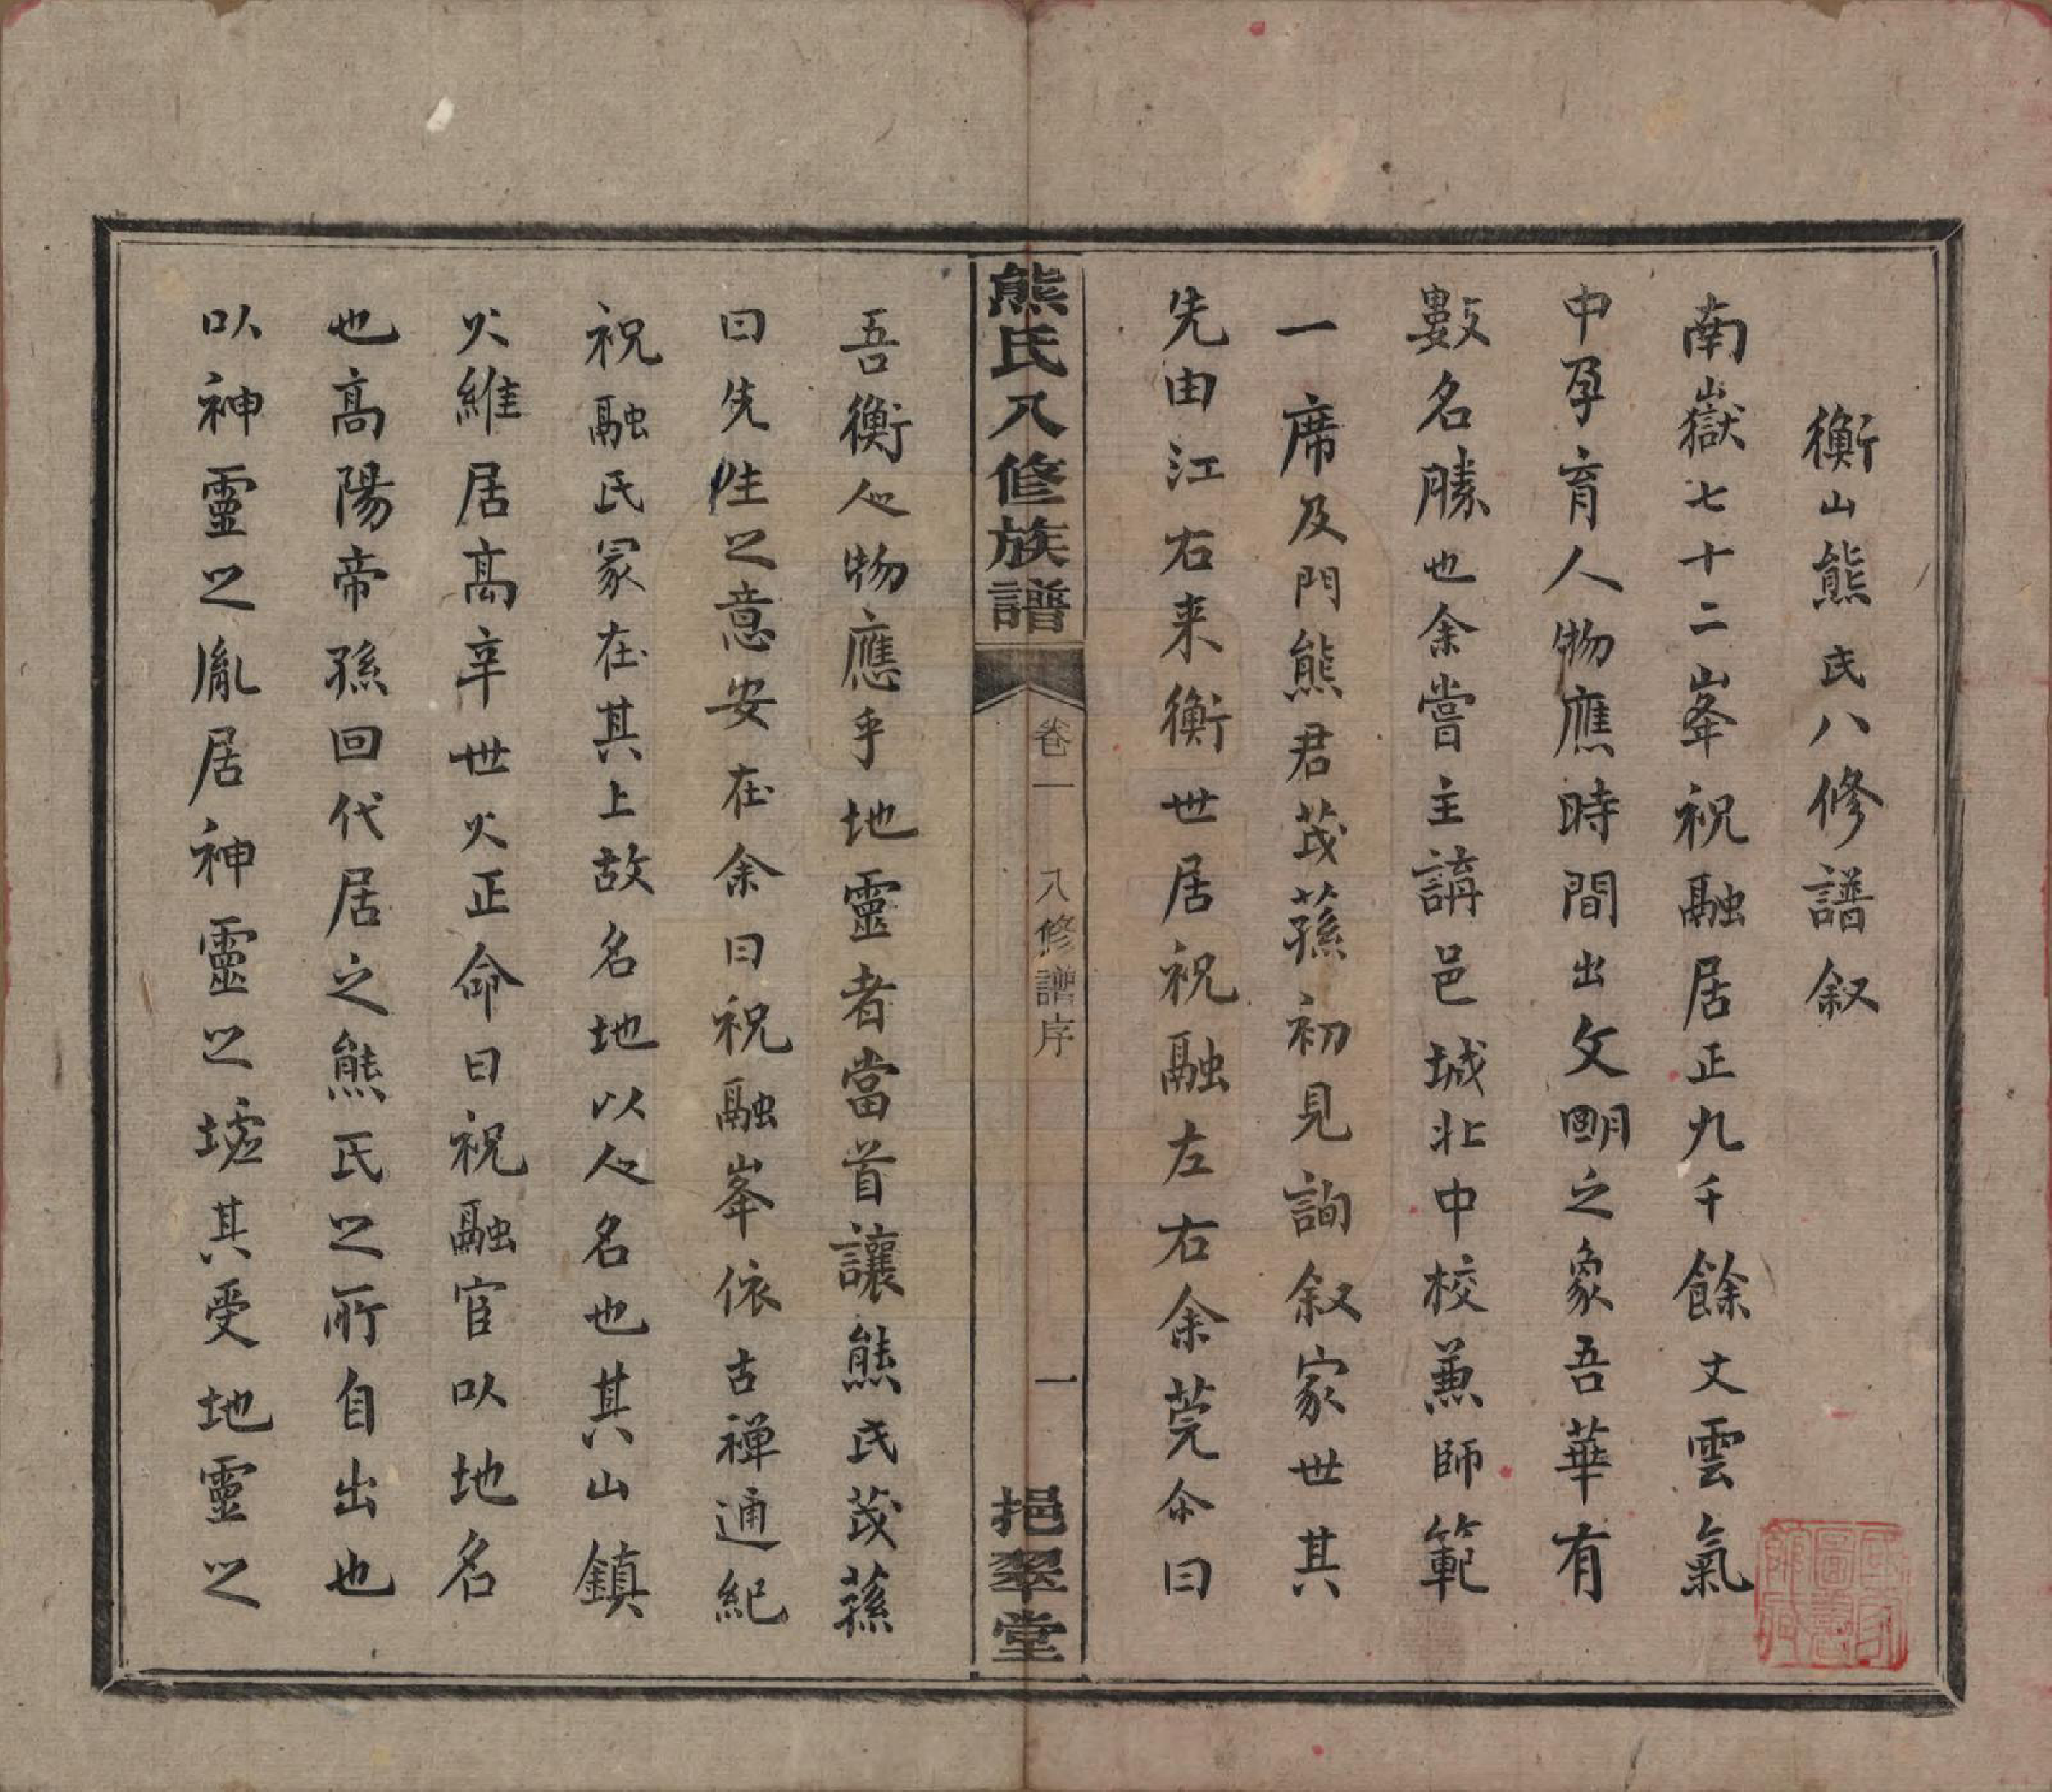 衡山熊氏八修譜叙
南嶽七十二峯祝融居正九千餘丈雲氣
中孕育人物應時間出文明之象吾華有
數名勝也余嘗主講邑城北中校兼師範
一席及門熊君茂蓀初見詢叙家世其
先由江右来衡世居祝融左右余莞尒曰
熊氏八修族譜
卷一
八修譜序
一
挹翠堂
吾衡人物應乎地靈者當首讓熊氏茂蓀
曰先生之意安在余曰祝融峯依古禅通紀
祝融氏冢在其上故名地以人名也其山鎮
火維居高辛世火正命曰祝融官以地名
也高陽帝孫回代居之熊氏之所自出也
以神靈之胤居神靈之墟其受地靈之
國家圖書館藏